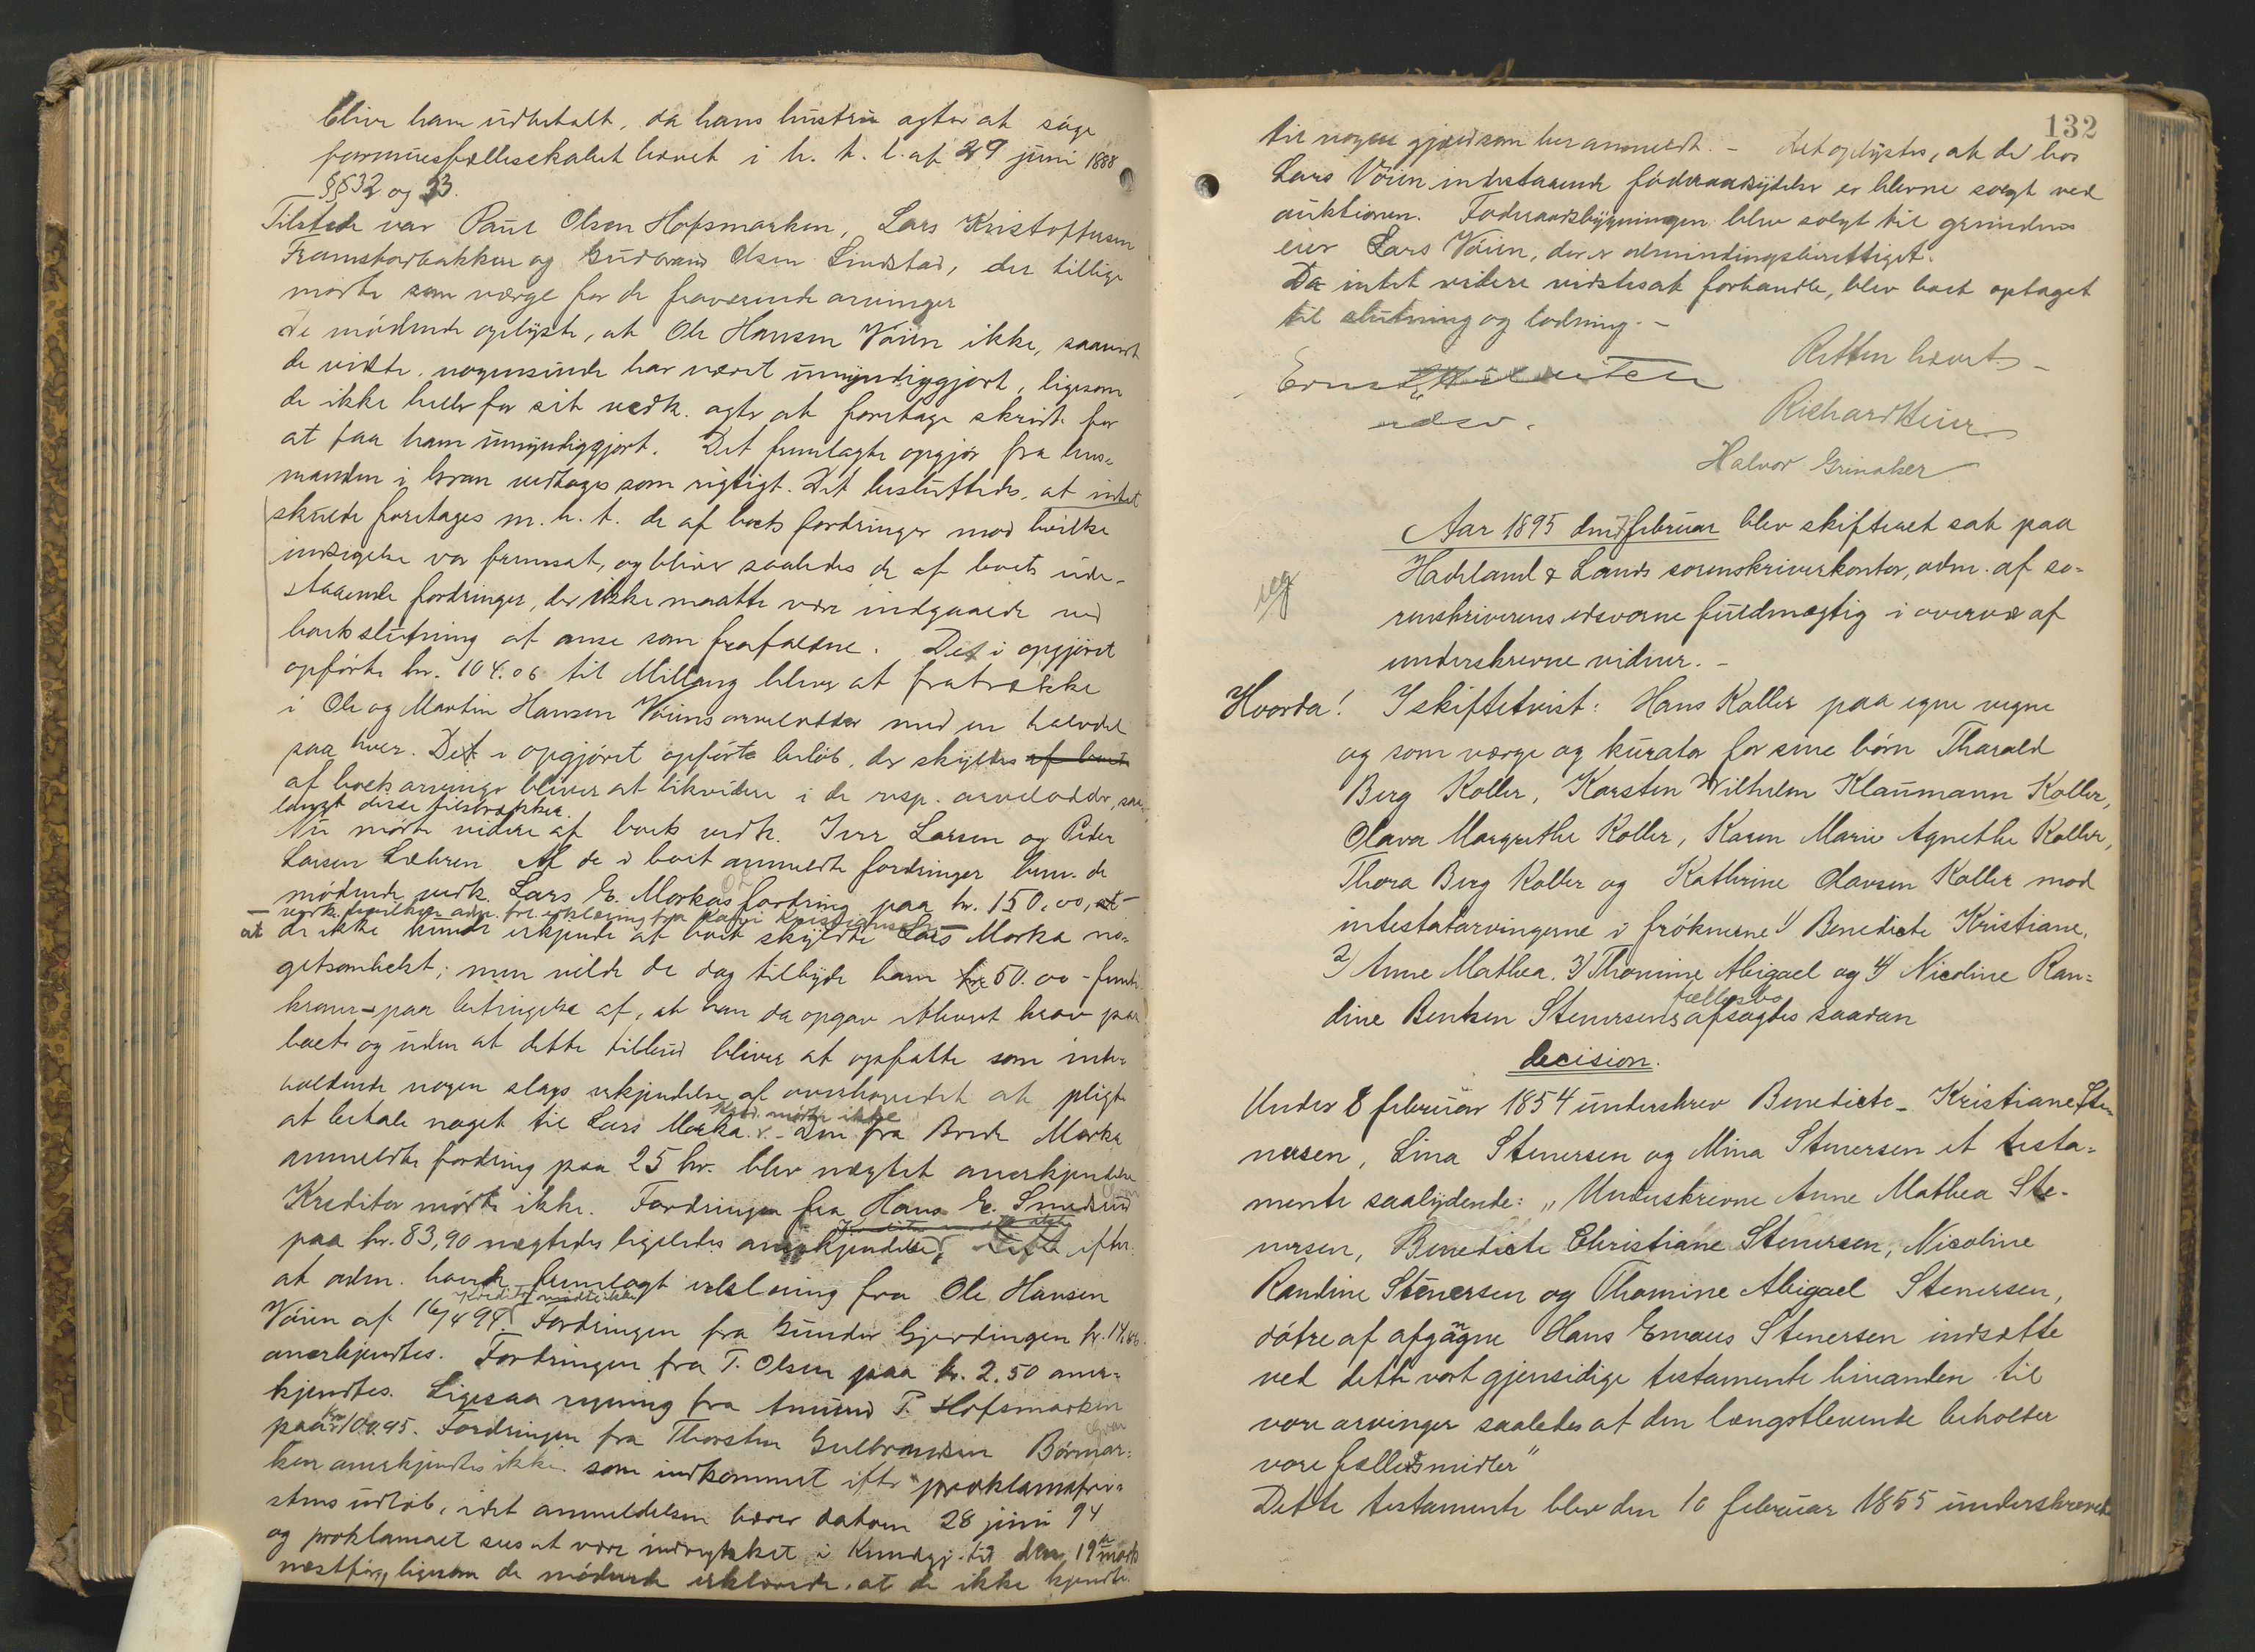 blive ham udbetalt, da hans hustru agter at söge
formuesfællesskabet hævet i h. t. l. af 29 juni 1888
§§ 32 og 33.
Tilstede var Paul Olsen Hofsmarken, Lars Kristoffersen
Framstadbakken og Gudbrand Olsen Lindstad, der tillige
mødte som værge for de fraværende arvinger
De mödende oplyste, at Ole Hansen Vöien ikke, saavidt
de vidste, nogensinde har været umyndiggjort, ligesom
de ikke heller for sit vedk. agter at foretage skridt for
at faa ham umyndiggjort. Det fremlagte opgjör fra lens-
manden i Gran vedtages som rigtigt. Det besluttedes, at intet
skulde foretages m. h. t. de af boets fordringer mod hvilke
indsigelse var fremsat, og bliver saaledes de af boets ude-
staaende fordringer, der ikke maatte være indgaaede ved
boets slutning at anse som frafaldne. Det i opgjöret
opförte kr. 104.06 til Millang bliver at fratrække
i Ole og Martin Hansen Vöiens arvelodder med en halvdel
paa hver. Det i opgjöret opförte belöb, der skyldes af boets
af boets arvinger bliver at likvidere i de resp. arvelodder, saa-
langt disse tilstrækker.
Nu mödte videre af boets vedk. Iver Larsen og Peder
Larsen Lehren. Af de i boet anmeldte fordringer bem. de
mödende vedk. Lars E. Morkas fordring paa kr. 150,00, at
vedk. hvilken adm. frl. erklæring fra
at de ikke kunde erkjende at boet skyldte Lars Morka no-
getsomhelst; men vilde de dog tilbyde ham kr. 50.00 - femti
kroner - paa betingelse af, at han da opgav ethvert krav paa
boet og uden at dette tilbud bliver at opfatte som inde-
holdende nogen slags erkjendelse af overhovedet at pligte
at betale noget til Lars Morka. Kred. mødte ikke - Den fra Brede Morka
anmeldte fordring paa 25 kr. blev nægtet anerkjendelse
Kreditor mødte ikke. Fordringen fra Hans E. Smedsrud
paa kr. 83,90 nægtedes ligeledes anerkjendelse, efter
at adm. havde fremlagt erklæring fra Ole Hansen
Kreditor mödte ikke
Vöien af 16/4 94. Fordringen fra Gunder Gjerdingen kr. 14.
anerkjendtes. Fordringen fra T. Olsen paa kr. 2.50 aner-
kjendtes. Ligesaa regning fra Amund P. Hofsmarken
paa kr 100.95. Fordringen fra Thorsten Gulbrandsen Börmar-
ken anerkjendtes ikke som indkommet efter proklamafri-
stens udlöb, idet anmeldelsen bærer datoen 28 juni 94
og proklamaet sees at være indrykket i Kundgj. tid. den 19de marts
næstför, ligesom de mödende erklærede, at de ikke kjendte
132
til nogen gjæld som her anmeldt. - Det oplystes, at de hos
Lars Vöien indestaaende föderaadsydelser er blevne solgt ved
auktionen. Föderaadsbygningen blev solgt til grundens
eier Lars Vöien, der er almindingsberettiget.
Da intet videre vidstes at forhandle, blev boet optaget
til slutning og lodning. -
Retten hævet -
edsv.
Richard Heier
Halvor Grinaker
Aar 1895 den 7 februar blev skifteret sat paa
Hadeland & Lands sorenskriverkontor, adm. af so-
renskriverens edsvorne fuldmægtig i overvær af
underskrevne vidner. -
Hvorda! I skiftetvist: Hans Koller paa egne vegne
og som værge og kurator for sine börn Tharald
Berg Koller, Karsten Wilhelm Klaumann Koller,
Olava Margrethe Koller, Karen Marie Agnethe Koller,
Thora Berg Koller og Kathrine Olavsen Koller mod
intestatarvingerne i fröknerne 1) Benedicte Kristiane,
2) Anne Mathea, 3) Thomine Abigael og 4) Nicoline Ran-
dine Bentsen Stenersens fællesbo afsagdes saadan
decision.
Under 8 februar 1854 underskrev Benedicte - Kristiane Ste-
nersen, Lina Stenersen og Mina Stenersen et testa-
mente saalydende: „Underskrevne Anne Mathea Ste-
nersen, Benedicte Christiane Stenersen, Nicoline
Randine Stenersen og Thomine Abigael Stenersen,
döttre af afgangne Hans Emaus Stenersen indsætte
ved dette vort gjensidige testamente hinanden til
vore arvinger saaledes at den længstlevende beholder
vore fællesmidler"
Dette testamente blev den 10 februar 1855 underskrevet